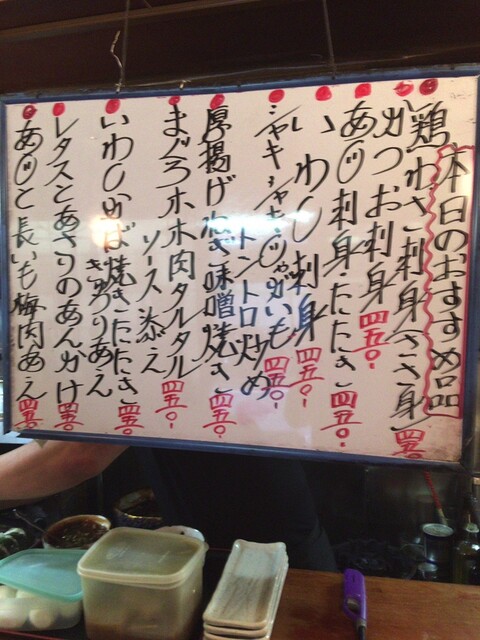 本日のおすすめ品
鶏わさ刺身(ささ身) 四五〇-
かつお刺身 四五〇-
あじ刺身・たたき 四五〇-
いわし刺身 四五〇-
シャキシャキじゃがいも
トントロ炒め 四五〇-
厚揚げねぎ味噌焼き 四五〇-
まぐろホホ肉タルタル
ソース添え 四五〇-
いわしかば焼きたたき
きゅうりあえ 四五〇-
レタスとあさりのあんかけ 四五〇-
あじと長いも梅肉あえ 四五〇-